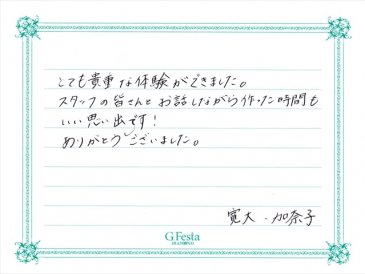 とても貴重な体験ができました。
スタッフの皆さんとお話しながら作った時間も
いい思い出です!
ありがとうございました。
寛大・加奈子
G.Festa
DIAMOND